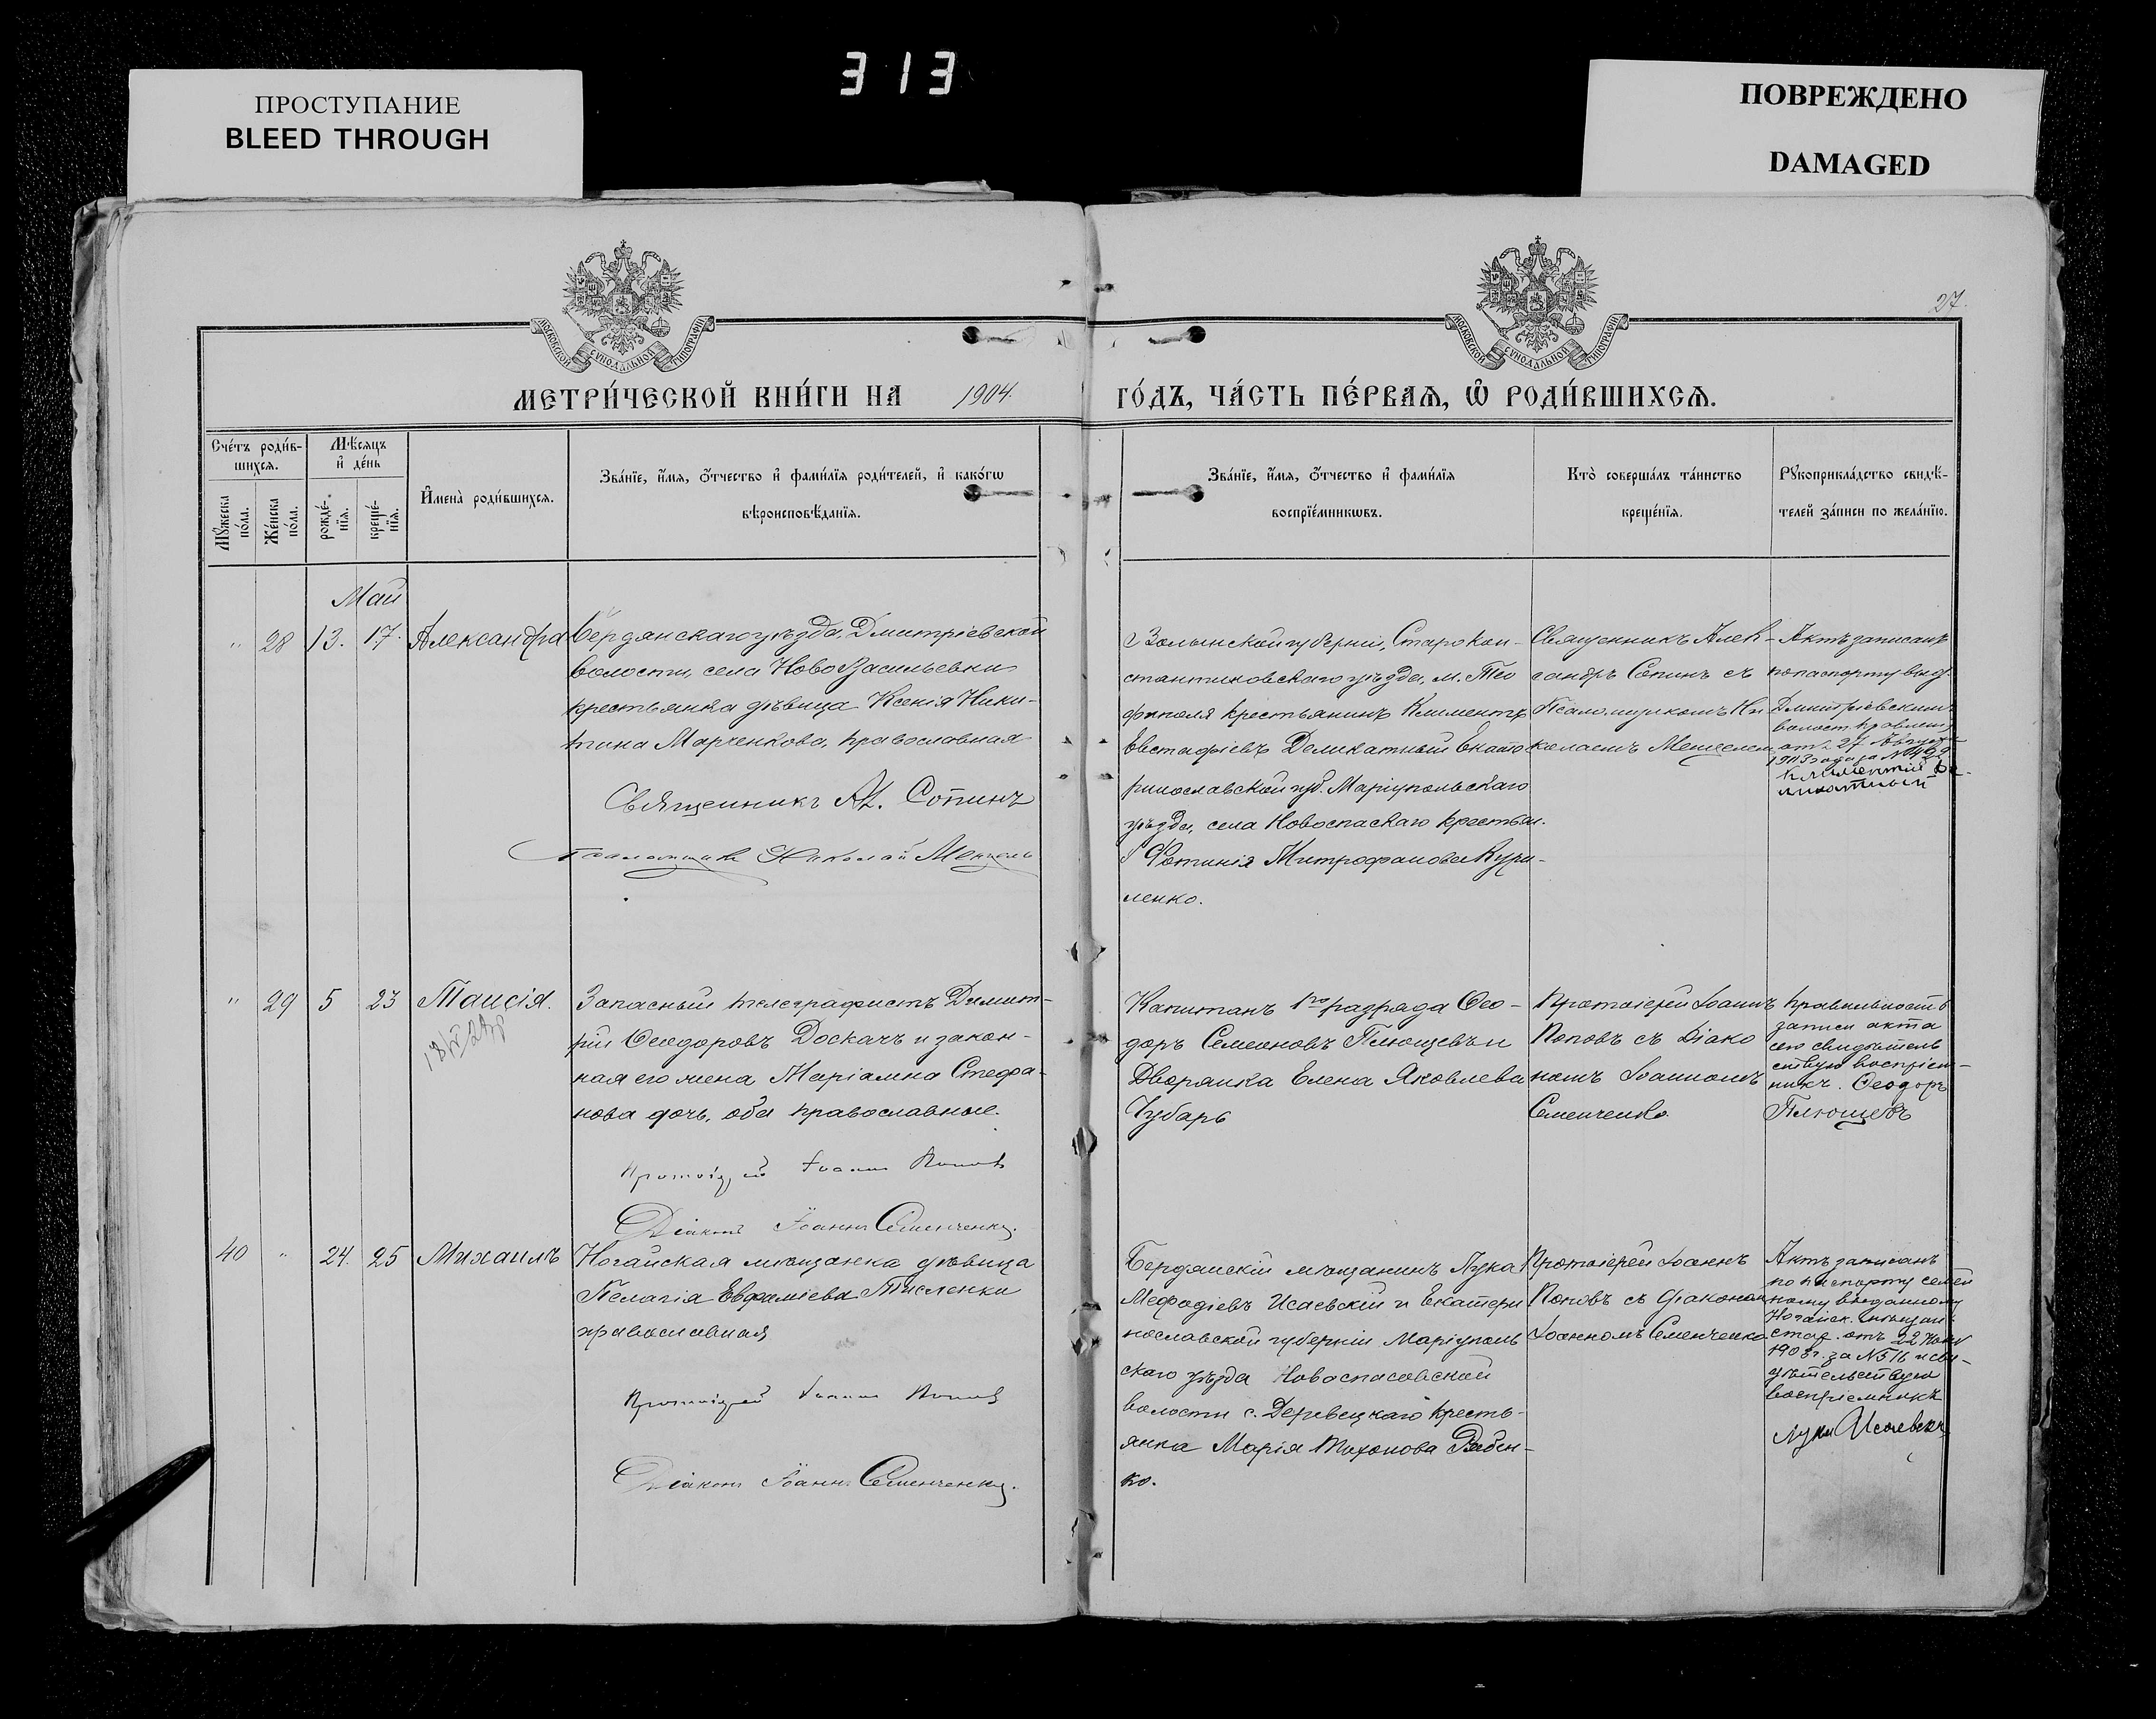 313
ПРОСТУПАНИЕ
BLEED THROUGH
ПОВРЕЖДЕНО
DAMAGED
27.
МОСКОВСКОЙ СѴНОДАЛЬНОЙ ТИПОГРАФІИ
МОСКОВСКОЙ СѴНОДАЛЬНОЙ ТИПОГРАФІИ
МЕТРИ́ЧЕСКОЙ КНИ́ГИ НА 1904. ГО́ДЪ, ЧА́СТЬ ПЕ́РВАѦ, Ѿ РОДИ́ВШИХСѦ.
Сче́тъ роди́в-
шихсѧ.
Мꙋ́жеска по́ла.
Же́нска по́ла.
Мѣ́сѧцъ и҆ де́нь
рожде́-
нїѧ.
креще́-
нїѧ.
И҆мена̀ роди́вшихсѧ.
Зва́нїе, и҆́мѧ, ѻ҆́тчество и҆ фами́лїѧ роди́телей, и҆ како́гѡ
вѣроисповѣ́данїѧ.
Зва́нїе, и҆́мѧ, ѻ҆́тчество и҆ фами́лїѧ
воспрїе́мникѡвъ.
Кто̀ соверша́лъ та́инство
креще́нїѧ.
Рꙋкоприкла́дство свидѣ́-
телей за́писи по жела́нїю.
Май
" 28 13. 17. Александра
Бердянскаго уѣзда, Дмитріевской
волости, села НовоВасильевки
крестьянка дѣвица Ксенія Ники-
тина Марченкова, православная
Священникъ Ал. Сопинъ
Псаломщикъ Николай Менчель
Волынской губерніи, Старокон-
стантиновскаго уѣзда, м. Тео
фиполя крестьянинъ Климентъ
Евстафіевъ Деликатный Екате
ринославской губ. Маріупольскаго
уѣзда, села Новоспаскаго крестьян.
Фотинія Митрофанова Кури-
ленко.
Священникъ Алек-
сандръ Сопинъ съ
Псаломщикомъ Ни
колаемъ
Актъ записанъ
по паспорту выд.
Дмитріевскимъ
волост. правлен.
отъ 27 Августа
1903 года за №
" 29 5 23 Таисія.
Запасный телеграфистъ Димит-
рій Ѳеодоровъ Доскачъ и закон-
ная его жена Маріамна Стефа-
нова дочь, оба православные.
Протоіерей Іоаннъ Поповъ
Діаконъ Іоаннъ Семенченко.
Капитанъ 1го разряда Ѳео-
доръ Семеновъ Плющевъ и
Дворянка Елена Яковлева
Чубарь
Протоіерей Іоаннъ
Поповъ съ Діако
номъ Іоанномъ
Семенченко
Правильность
записи акта
сего свидѣтель
ствую воспріем-
никъ. Ѳеодоръ
Плющевъ
40 " 24. 25 Михаилъ
Ногайская мѣщанка дѣвица
Пелагія Евфиміева Тисленка
православная
Протоіерей Іоаннъ Поповъ
Діаконъ Іоаннъ Семенченко.
Бердянскій мѣщанинъ Лука
Мефодіевъ Исаевскій и Екатери
нославской губерніи Маріуполь
скаго уѣзда Новоспасовской
волости с. Деревецкаго кресть-
янка Марія
ко.
Протоіерей Іоаннъ
Поповъ съ діакономъ
Іоанномъ Семенченко.
Актъ записанъ
по паспорту семей
ному выданному
Ногайск. мѣщан.
стар. отъ 22
за №516 и сви-
дѣтельствую
воспріемникъ
Лука Исаевскій